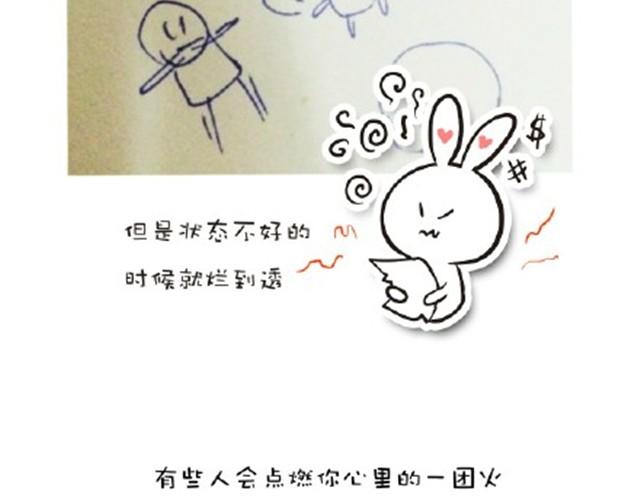 但是状态不好的
时候就烂到透
$
#
有些人会点燃你心里的一团火